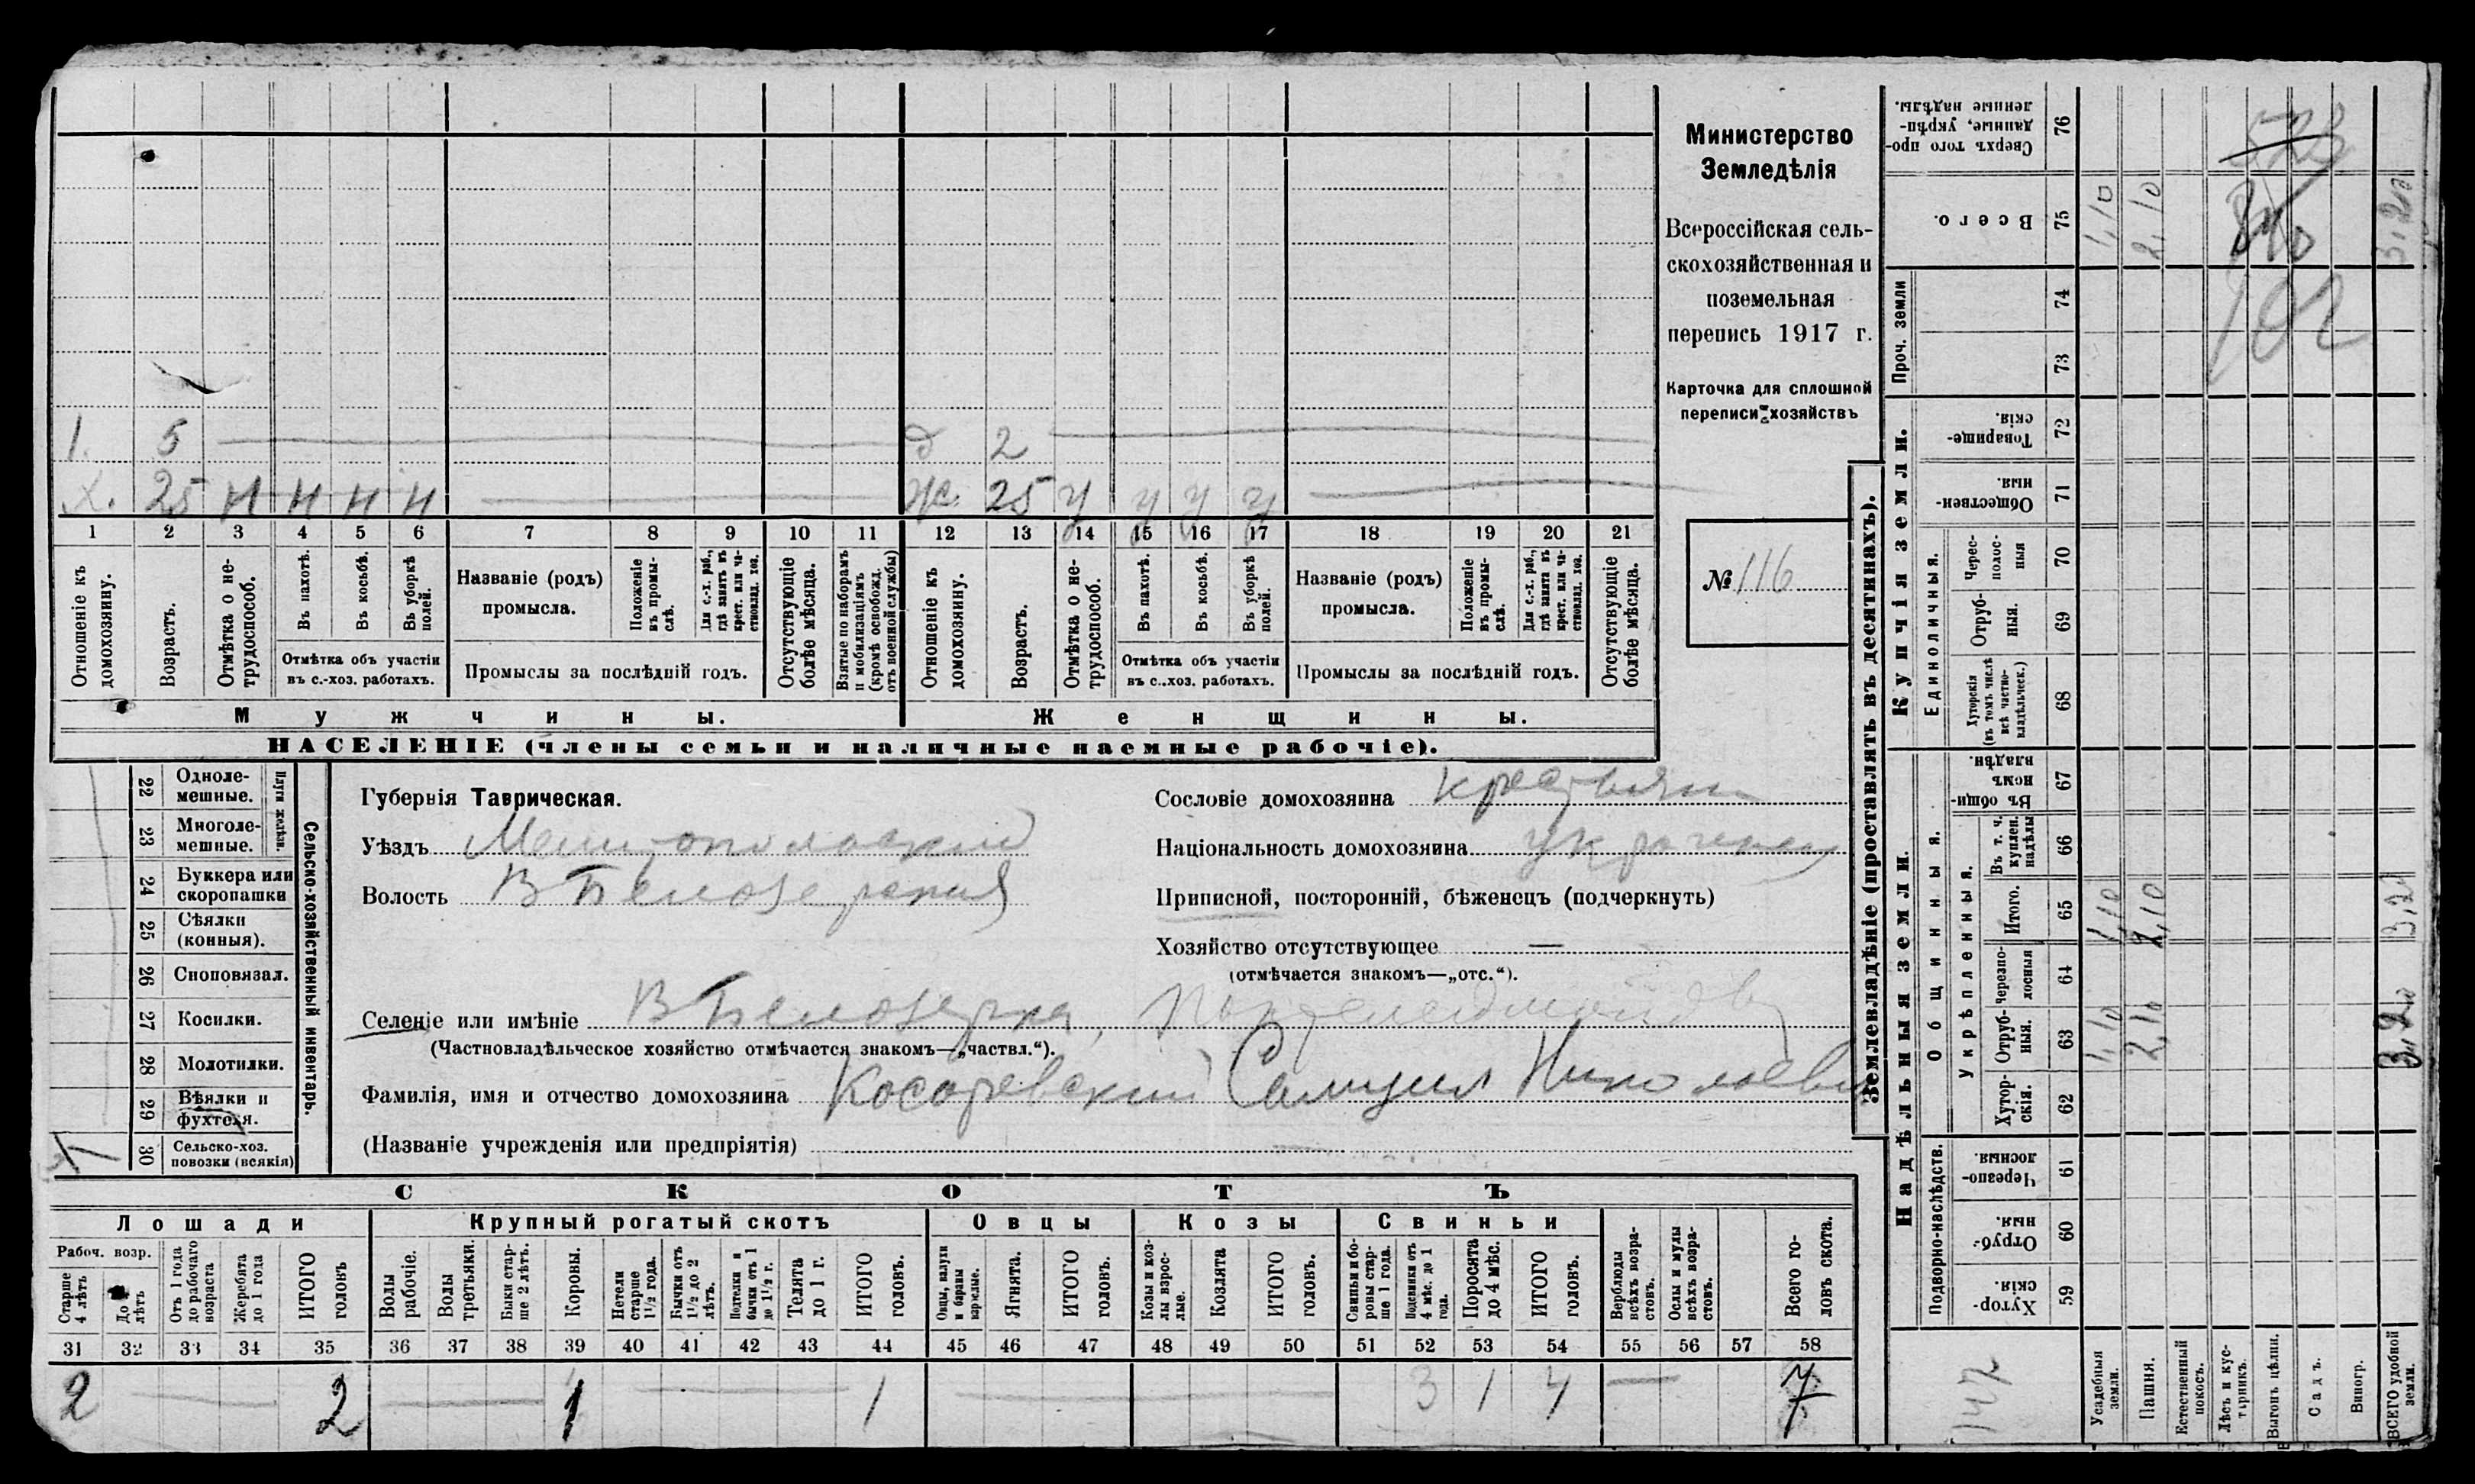 Министерство
Земледѣлія
Всероссійская сель-
скохозяйственная и
поземельная
перепись 1917 г.
Карточка для сплошной
переписи хозяйствъ
№ 116
1. 5 д 2
х. 25 н н н н ж. 25 у у у у
1 2 3 4 5 6 7 8 9 10 11 12 13 14 15 16 17 18 19 20 21
Отношеніе къ домохозяину.
Возрастъ.
Отмѣтка о не-трудоспособ.
Въ пахотѣ.
Въ косьбѣ.
Въ уборкѣ полей.
Отмѣтка объ участіи
въ с.-хоз. работахъ.
Названіе (родъ)
промысла.
Положеніе въ промы-слѣ.
Для с.-х. раб., гдѣ занятъ въ крест. или ча-стновлад. хоз.
Промыслы за послѣдній годъ.
Отсутствующіе болѣе мѣсяца.
Взятые по наборамъ и мобилизаціямъ (кромѣ освобожд. отъ военной службы)
Отношеніе къ домохозяину.
Возрастъ.
Отмѣтка о не-трудоспособ.
Въ пахотѣ.
Въ косьбѣ.
Въ уборкѣ полей.
Отмѣтка объ участіи
въ с.-хоз. работахъ.
Названіе (родъ)
промысла.
Положеніе въ промы-слѣ.
Для с.-х. раб., гдѣ занята въ крест. или ча-стновлад. хоз.
Промыслы за послѣдній годъ.
Отсутствующіе болѣе мѣсяца.
Мужчины. Женщины.
НАСЕЛЕНІЕ (члены семьи и наличные наемные рабочіе).
22 Одноле-мешные.
23 Многоле-мешные.
Плуги желѣзн.
24 Буккера или скоропашки
25 Сѣялки (конныя).
26 Сноповязал.
27 Косилки.
28 Молотилки.
29 Вѣялки и фухтеля.
30 Сельско-хоз. повозки (всякія)
Сельско-хозяйственный инвентарь.
Губернія Таврическая.
Уѣздъ Мелитопольский
Волость В Белозерская
Сословіе домохозяина крестьян
Національность домохозяина украинец
Приписной, посторонній, бѣженецъ (подчеркнуть)
Хозяйство отсутствующее —
(отмѣчается знакомъ—„отс.“).
Селеніе или имѣніе В Белозерка,
(Частновладѣльческое хозяйство отмѣчается знакомъ—„частвл.“).
Фамилія, имя и отчество домохозяина Косаревский Самуил Николаеви
(Названіе учрежденія или предпріятія)
СКОТЪ
Лошади Крупный рогатый скотъ Овцы Козы Свиньи
Рабоч. возр.
Старше 4 лѣтъ
До лѣтъ
Отъ 1 года до рабочаго возраста
Жеребята до 1 года
ИТОГО головъ
Волы рабочіе.
Волы третьяки.
Быки стар-ше 2 лѣтъ.
Коровы.
Нетели старше 1½ года.
Бычки отъ 1½ до 2 лѣтъ.
Подтелки и бычки отъ 1 до 1½ г.
Телята до 1 г.
ИТОГО головъ.
Овцы, валухи и бараны взрослые.
Ягнята.
ИТОГО головъ.
Козы и коз-лы взрос-лые.
Козлята
ИТОГО головъ.
Свиньи и бо-ровы стар-ше 1 года.
Подсвинки отъ 4 мѣс. до 1 года.
Поросята до 4 мѣс.
ИТОГО головъ.
Верблюды всѣхъ возра-стовъ.
Ослы и мулы всѣхъ возра-стовъ.
Всего го-ловъ скота.
31 32 33 34 35 36 37 38 39 40 41 42 43 44 45 46 47 48 49 50 51 52 53 54 55 56 57 58
2 2 1 1 3 1 4 7
Землевладѣніе (проставлять въ десятинахъ).
Надѣльныя земли.
Купчія земли.
Проч. земли
Подворно-наслѣдств.
Общинныя.
Укрѣпленныя.
Единоличныя.
Сверхъ того про-данные, укрѣп-ленные надѣлы. 76
Всего. 75 1,10 2,10 3,20
74
73
Товарище-скія. 72
Обществен-ныя. 71
Черес-полос-ныя 70
Отруб-ныя. 69
Хуторскія (въ томъ числѣ всѣ частно-владѣльческ.) 68
Въ общин-номъ владѣн. 67
Въ т. ч. куплен. надѣлы 66
Итого. 65 1,10 2,10 3,20
Черезпо-лосныя 64
Отруб-ныя. 63 1,10 2,10 3,20
Хутор-скія. 62
Черезпо-лосныя. 61
Отруб-ныя. 60
Хутор-скія. 59
Усадебныя земли.
Пашня.
Естественный покосъ.
Лѣсъ и кус-тарникъ.
Выгонъ цѣлин.
Садъ.
Виногр.
ВСЕГО удобной земли.
523
102
147